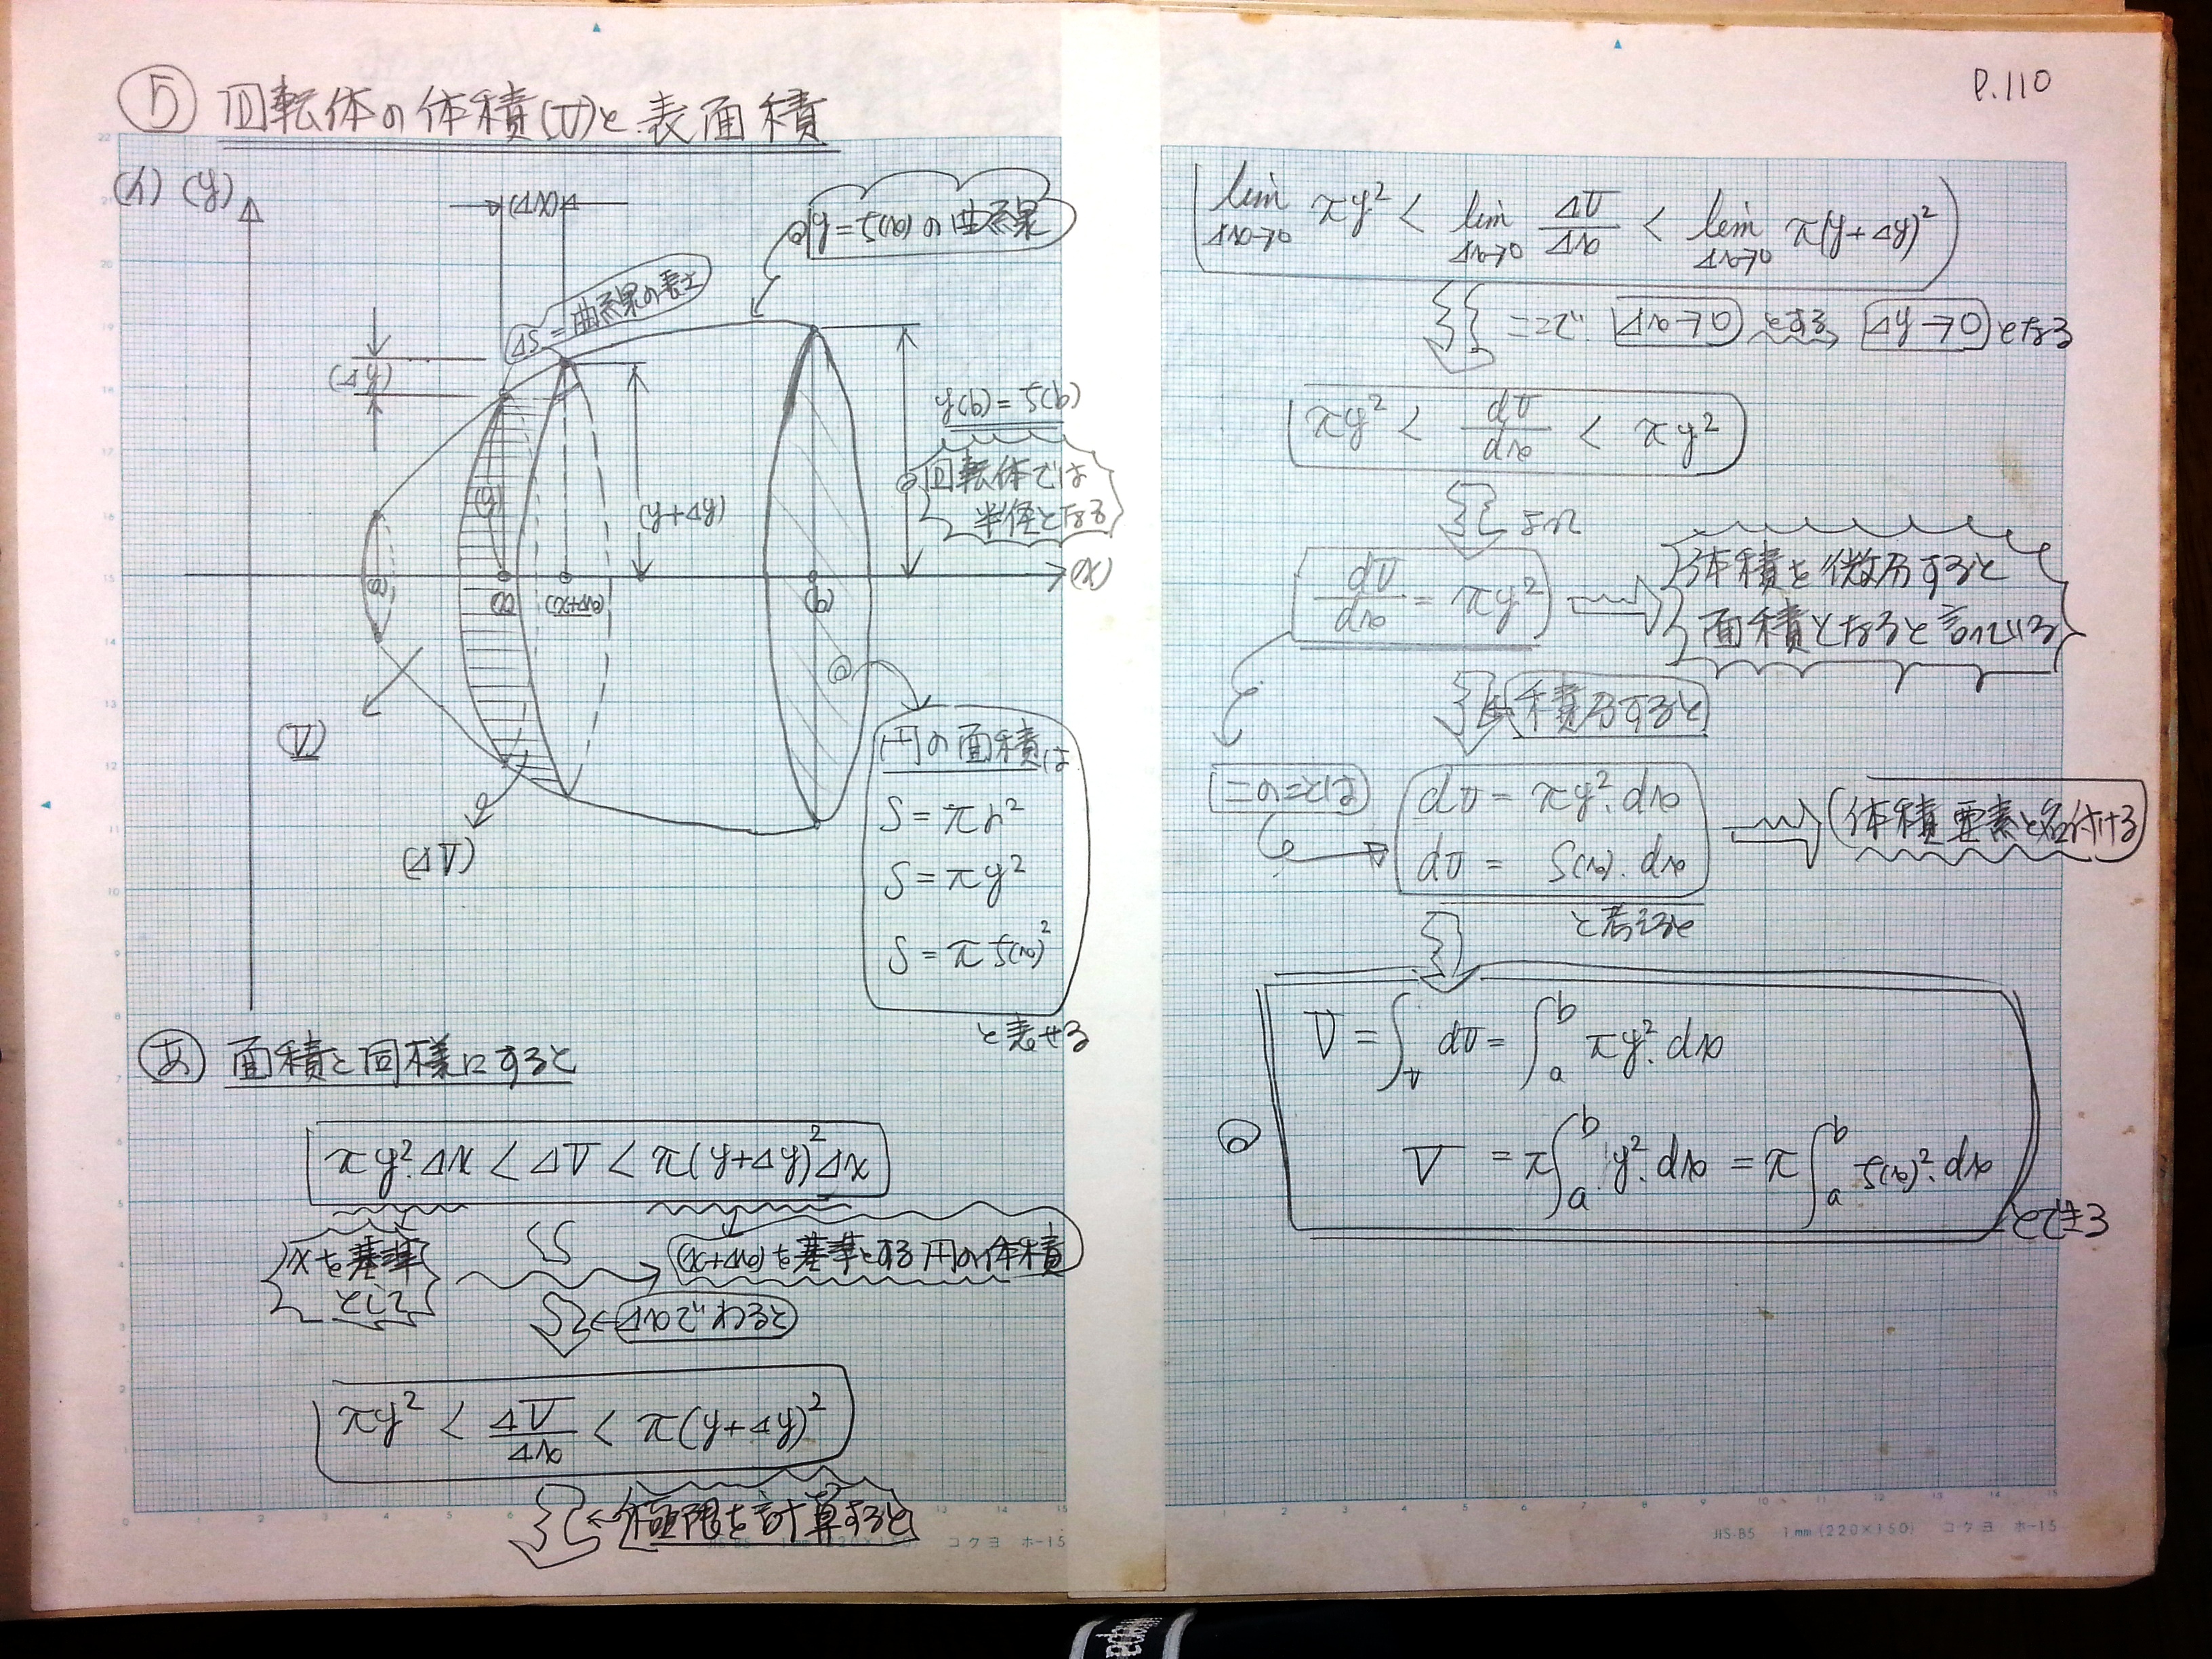 ⑤ 回転体の体積(V)と表面積
P.110
(r) (y)
(Δx)
y=f(x)の曲線
ΔS=曲線の長さ
(Δy)
y(b)=f(b)
回転体では
半径となる
(y)
(y+Δy)
(x)
(a)
(x)
(x+Δx)
(b)
(V)
(ΔV)
円の面積は
S=πr²
S=πy²
S=πf(x)²
と表せる
あ 面積と同様にすると
πy²·Δx < ΔV < π(y+Δy)²Δx
xを基準
として
(x+Δx)を基準とする円の体積
Δxでわると
πy² < ΔV/Δx < π(y+Δy)²
極限を計算すると
lim Δx→0 πy² < lim Δx→0 ΔV/Δx < lim Δx→0 π(y+Δy)²
ここで Δx→0 とすると Δy→0 となる
πy² < dV/dx < πy²
より
dV/dx = πy²
体積を微分すると
面積となると言っている
積分すると
このことは
dV = πy²·dx
dV = S(x)·dx
体積要素と名付ける
と考えると
V=∫v dV=∫a b πy²·dx
V =π∫a b y²·dx =π∫a b f(x)²·dx
とできる
JIS-B5 1mm(220×150) コクヨ ホ-15
JIS-B5 1mm(220×150) コクヨ ホ-15